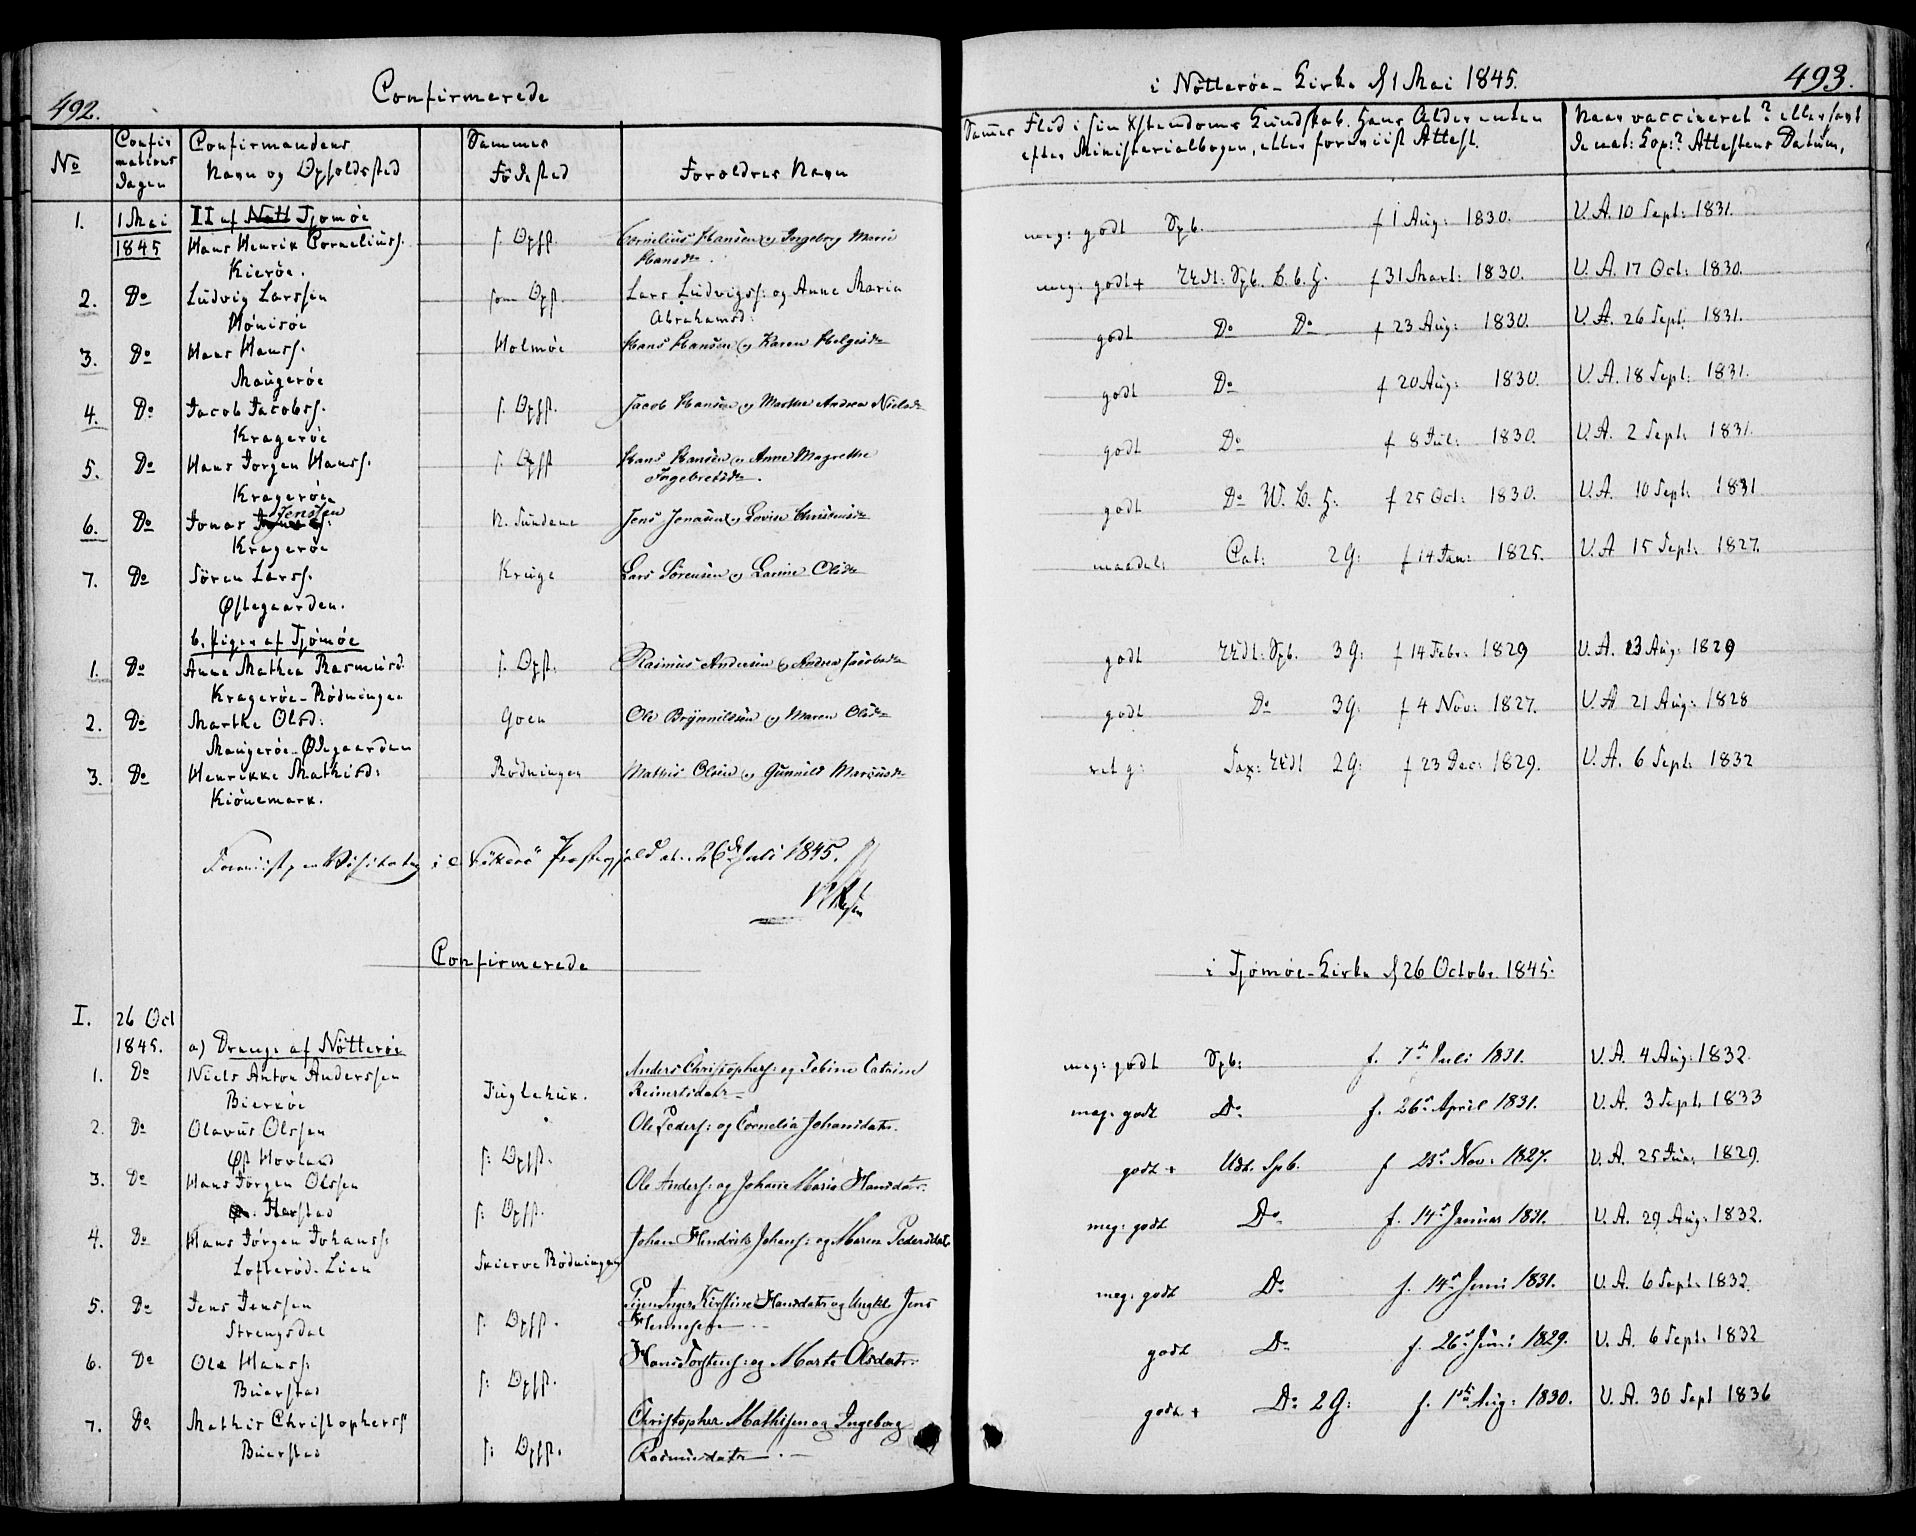 492.
Confirmerede
No
Confirmations Dagen
Confirmandens Navn og Opholdssted
Sammes Fødested
Foreldres Navn
1. 1 Mai 1845
II af Nøtt Tjømøe
Hans Henrik Corneliuss. s. Opst. Cornelius Hansen og Ingeborg Marie
Kierøe. Hansdr.
2. Do Ludvig Larssen som Opst. Lars Ludvigs: og Anne Maria
Hönisøe Abrahamsd:
3. Do Hans Hanss. Holmøe Hans Hansen og Karen Helgesdr
Maugerøe
4. Do Jacob Jacobss. s. Opst. Jacob Hansen og Marthe Andrea Nielsdr
Kragerøe
5. Do Hans Jørgen Hanss. s. Opst Hans Hansen og Anne Magrethe
Kragerøe Ingebretsdr.
6. Do Jonas Jenssen N. Sundene Jens Jonasen og Lovise Christensdr
Kragerøe
7. Do Søren Larss. Kruge Lars Sörensen og Larine Olsdr
Østegaarden.
b. Piger af Tjømøe
1. Do Anne Mathea Rasmusd. s. Opst. Rasmus Andersen og Andrea Jacobsdr
Kragerøe-Rødningen
2. Do Marthe Olsd: Goen Ole Brynnildsen og Maren Olsdr
Maugerøe-Ødegaarden
3. Do Henrikke Mathisd: Rødningen Mathis Olsen og Gunnild Marcusdr
Kiönemark.
i Nötterö Præstegjeld d. 26de Juli 1845.
Confirmerede
I. 26 Oct
1845. a) Drenge af Nötterøe
1. Do Niels Anton Anderssen Fuglehuk. Anders Christophers: og Sebine Catrine
Bierkøe Reinertsdatr
2. Do Olavus Olssen s: Opst. Ole Peders: og Cornelia Johansdatr.
Øst Hovland
3. Do Hans Jørgen Olssen s: Opst. Ole Anders: og Johanne Maria Hansdatr.
Harstad
4. Do Hans Jørgen Johanss: Skierve Rødningen Johan Hendrik Johans: og Maren Pedersdatr
Lofterød-Lien
5. Do Jens Jenssen s: Opst. Pigen Inger Kirstine Hansdatr og Ungkl. Jens
Strengsdal
6. Do Ole Hanss: s: Opst. Hans Torstens: og Marte Olsdatr.
Buerstad
7. Do Mathis Christopherss s: Opst. Christopher Mathisen og Ingeborg
Buerstad Rasmusdatr
i Nötterøe-Kirke d 1 Mai 1845.
493.
Sammes Flid i sin Xstendoms Kundskab. Hans Alder enten
efter Ministerialbogen, eller foreviist Attest.
Naar vaccineret? eller havt
de nat: Kop:? Attestens Datum.
meg: godt Spb. f 1 Aug: 1830. V. A. 10 Sept: 1831.
meg: godt+ Udt: Spb. L. b. F. f 31 Mart: 1830. V. A. 17 Oct: 1830.
godt Do Do f 23 Aug: 1830. V. A. 26 Sept. 1831.
godt Do f 20 Aug: 1830. V. A. 18 Sept: 1831.
godt Do f 8 Jul: 1830. V. A. 2 Sept. 1831.
godt Do W. L. F. f 25 Oct: 1830. V. A. 10 Sept. 1831
maadel: Cat: 2 G: f 14 Jan: 1825. V. A 15 Sept. 1827.
godt Udt: Spb. 3 G: f 14 Febr: 1829 V. A. 13 Aug: 1829
godt Do 3 G: f 4 Nov: 1827. V. A 21 Aug: 1828
ret g: Sax: Udt 2 G: f 23 Dec: 1829. V. A. 6 Sept: 1832
i Tjømøe-Kirke d 26 Octobr. 1845.
meg: godt Spb: f. 7de Juli 1831. V. A. 4 Aug: 1832.
meg: godt Do f. 26de April 1831. V. A. 3 Sept. 1833
godt + Udt. Spb. f 23de Nov: 1827. V. A. 25 Jun. 1829.
meg: godt Do f. 14de Januar 1831. V. A. 29 Aug: 1832.
meg: godt Do f. 14de Juni 1831. V. A. 6 Sept. 1832
godt Do f. 26de Juni 1829. V. A. 6 Sept. 1832
godt + Do 2 G: f. 1ste Aug: 1830. V. A. 30 Sept 1836